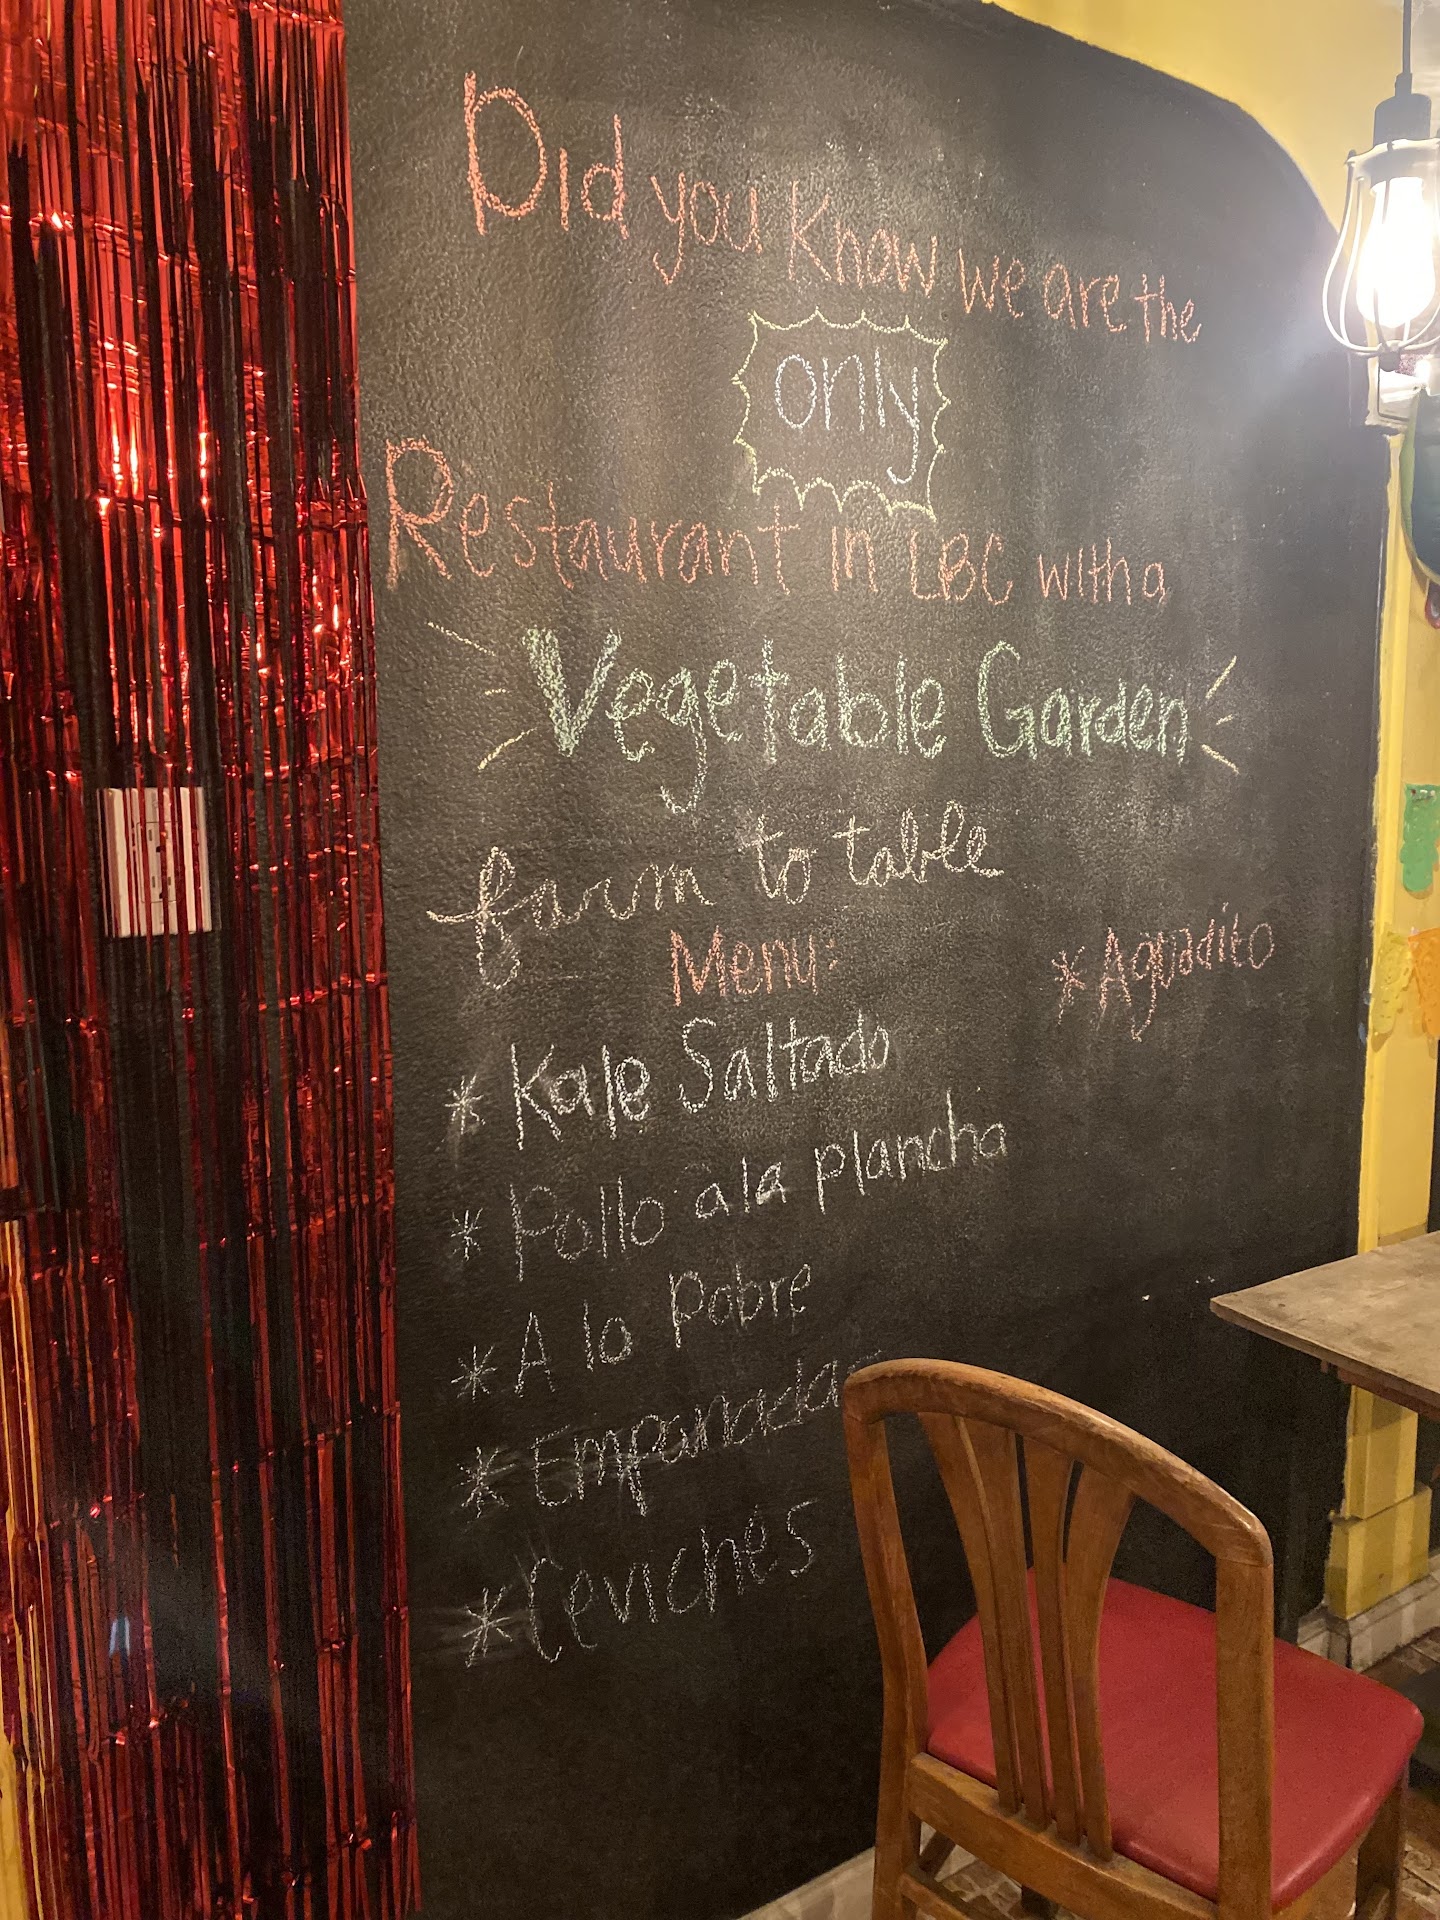 Did you know we are the
only
Restaurant in LBC with a
Vegetable Garden
farm to table
Menu:
* Aguadito
* Kale Saltado
* Pollo a la plancha
* A lo pobre
* Empanadas
* Ceviches